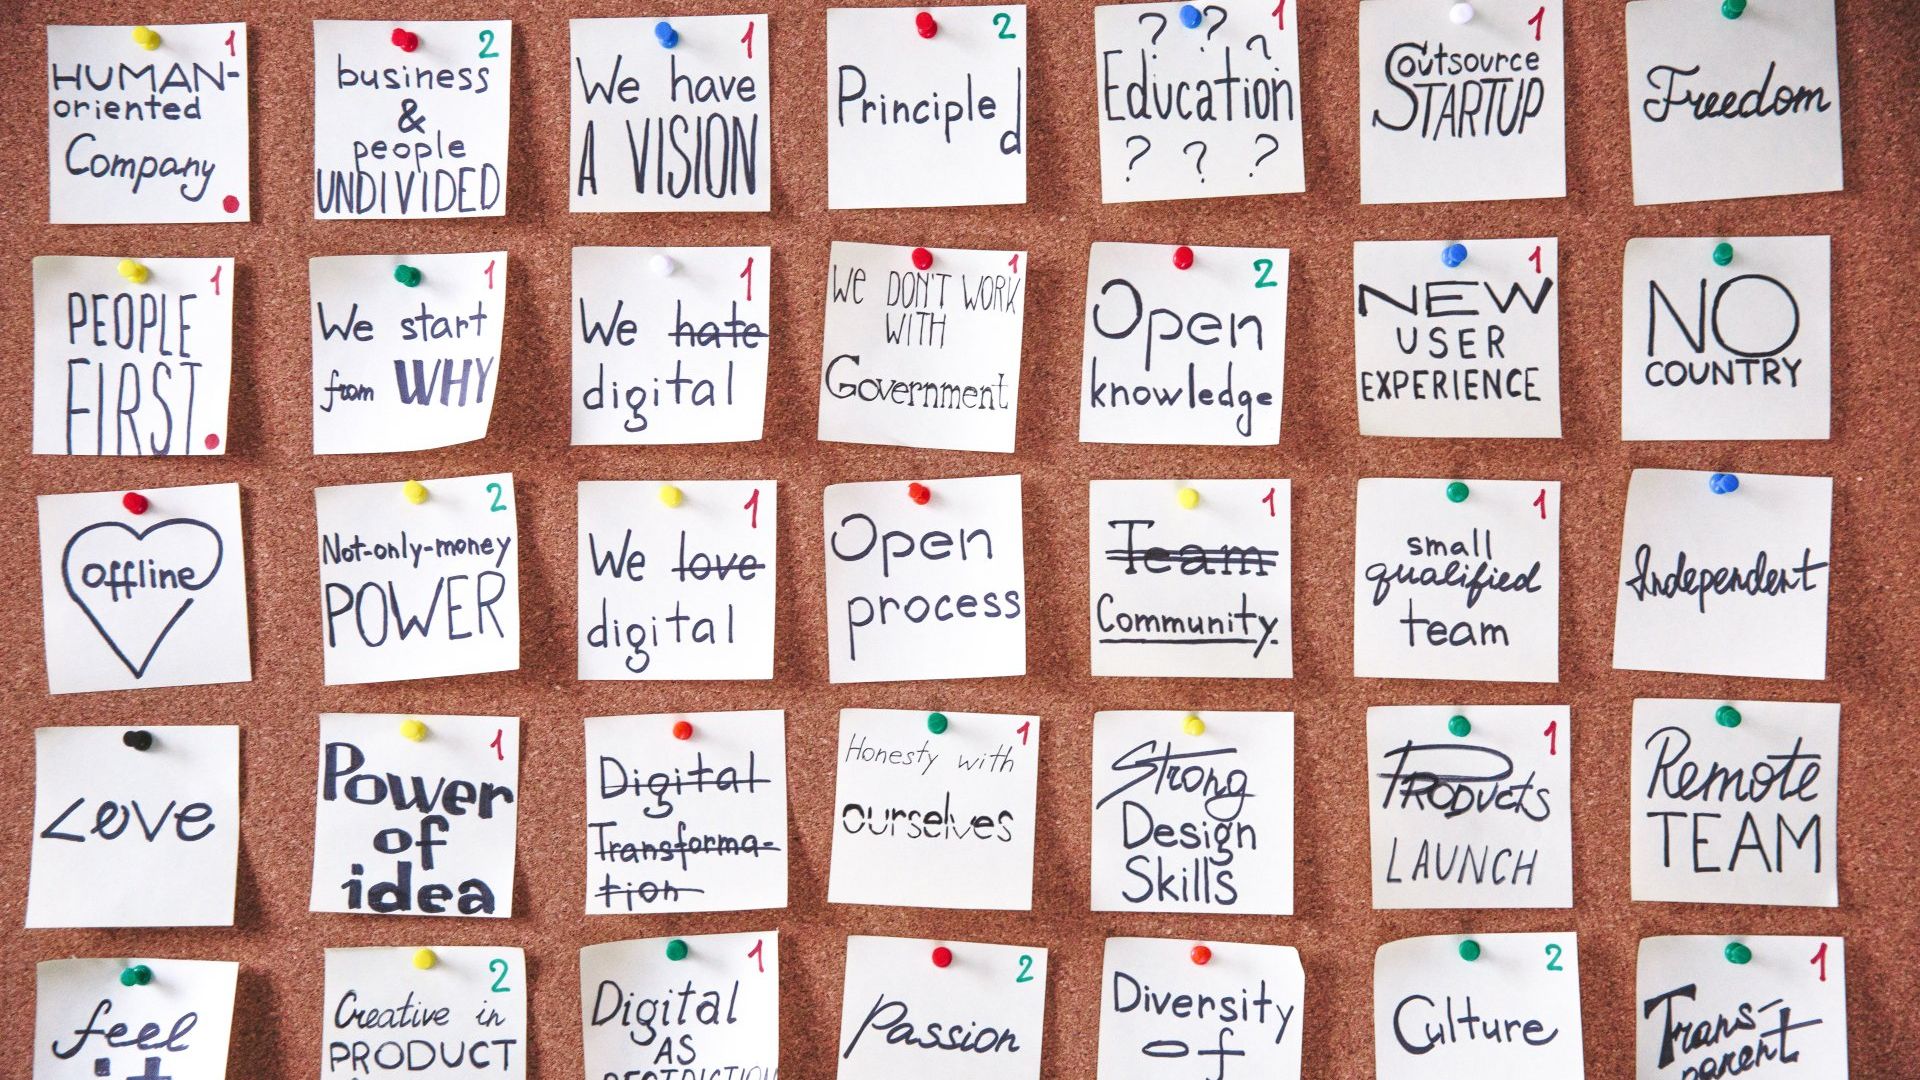 1
HUMAN-
oriented
Company
2
business
&
people
UNDIVIDED
1
We have
A VISION
2
Principled
1
? ? ?
Education
? ? ?
1
Outsource
STARTUP
Freedom
1
PEOPLE
FIRST
1
We start
from WHY
1
We hate
digital
1
WE DON'T WORK
WITH
Government
2
Open
knowledge
1
NEW
USER
EXPERIENCE
NO
COUNTRY
offline
2
Not-only-money
POWER
1
We love
digital
Open
process
1
Team
Community
1
small
qualified
team
Independent
Love
1
Power
of
idea
Digital
Transforma-
tion
1
Honesty with
ourselves
Strong
Design
Skills
1
PRODUCTS
LAUNCH
Remote
TEAM
feel
it
2
Creative in
PRODUCT
1
Digital
AS
RESTRICTION
2
Passion
Diversity
of
2
Culture
1
Trans-
parent